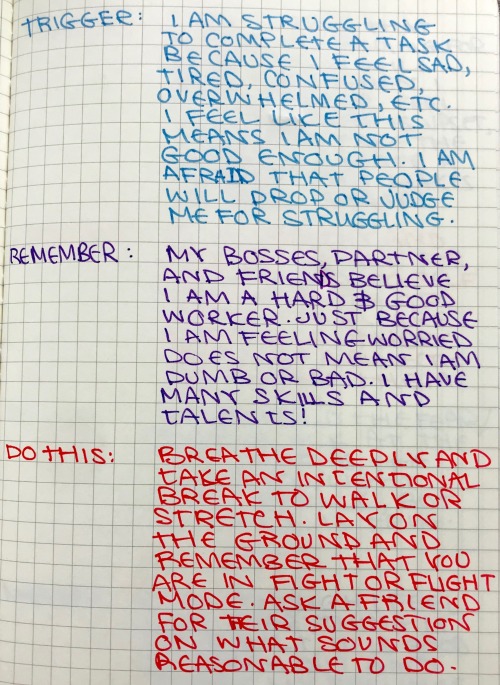 TRIGGER: I AM STRUGGLING
TO COMPLETE A TASK
BECAUSE I FEEL SAD,
TIRED, CONFUSED,
OVERWHELMED, ETC.
I FEEL LIKE THIS
MEANS I AM NOT
GOOD ENOUGH. I AM
AFRAID THAT PEOPLE
WILL DROP OR JUDGE
ME FOR STRUGGLING.
REMEMBER: MY BOSSES, PARTNER,
AND FRIENDS BELIEVE
I AM A HARD & GOOD
WORKER. JUST BECAUSE
I AM FEELING WORRIED
DOES NOT MEAN I AM
DUMB OR BAD. I HAVE
MANY SKILLS AND
TALENTS!
DO THIS: BREATHE DEEPLY AND
TAKE AN INTENTIONAL
BREAK TO WALK OR
STRETCH. LAY ON
THE GROUND AND
REMEMBER THAT YOU
ARE IN FIGHT OR FLIGHT
MODE. ASK A FRIEND
FOR THEIR SUGGESTION
ON WHAT SOUNDS
REASONABLE TO DO.